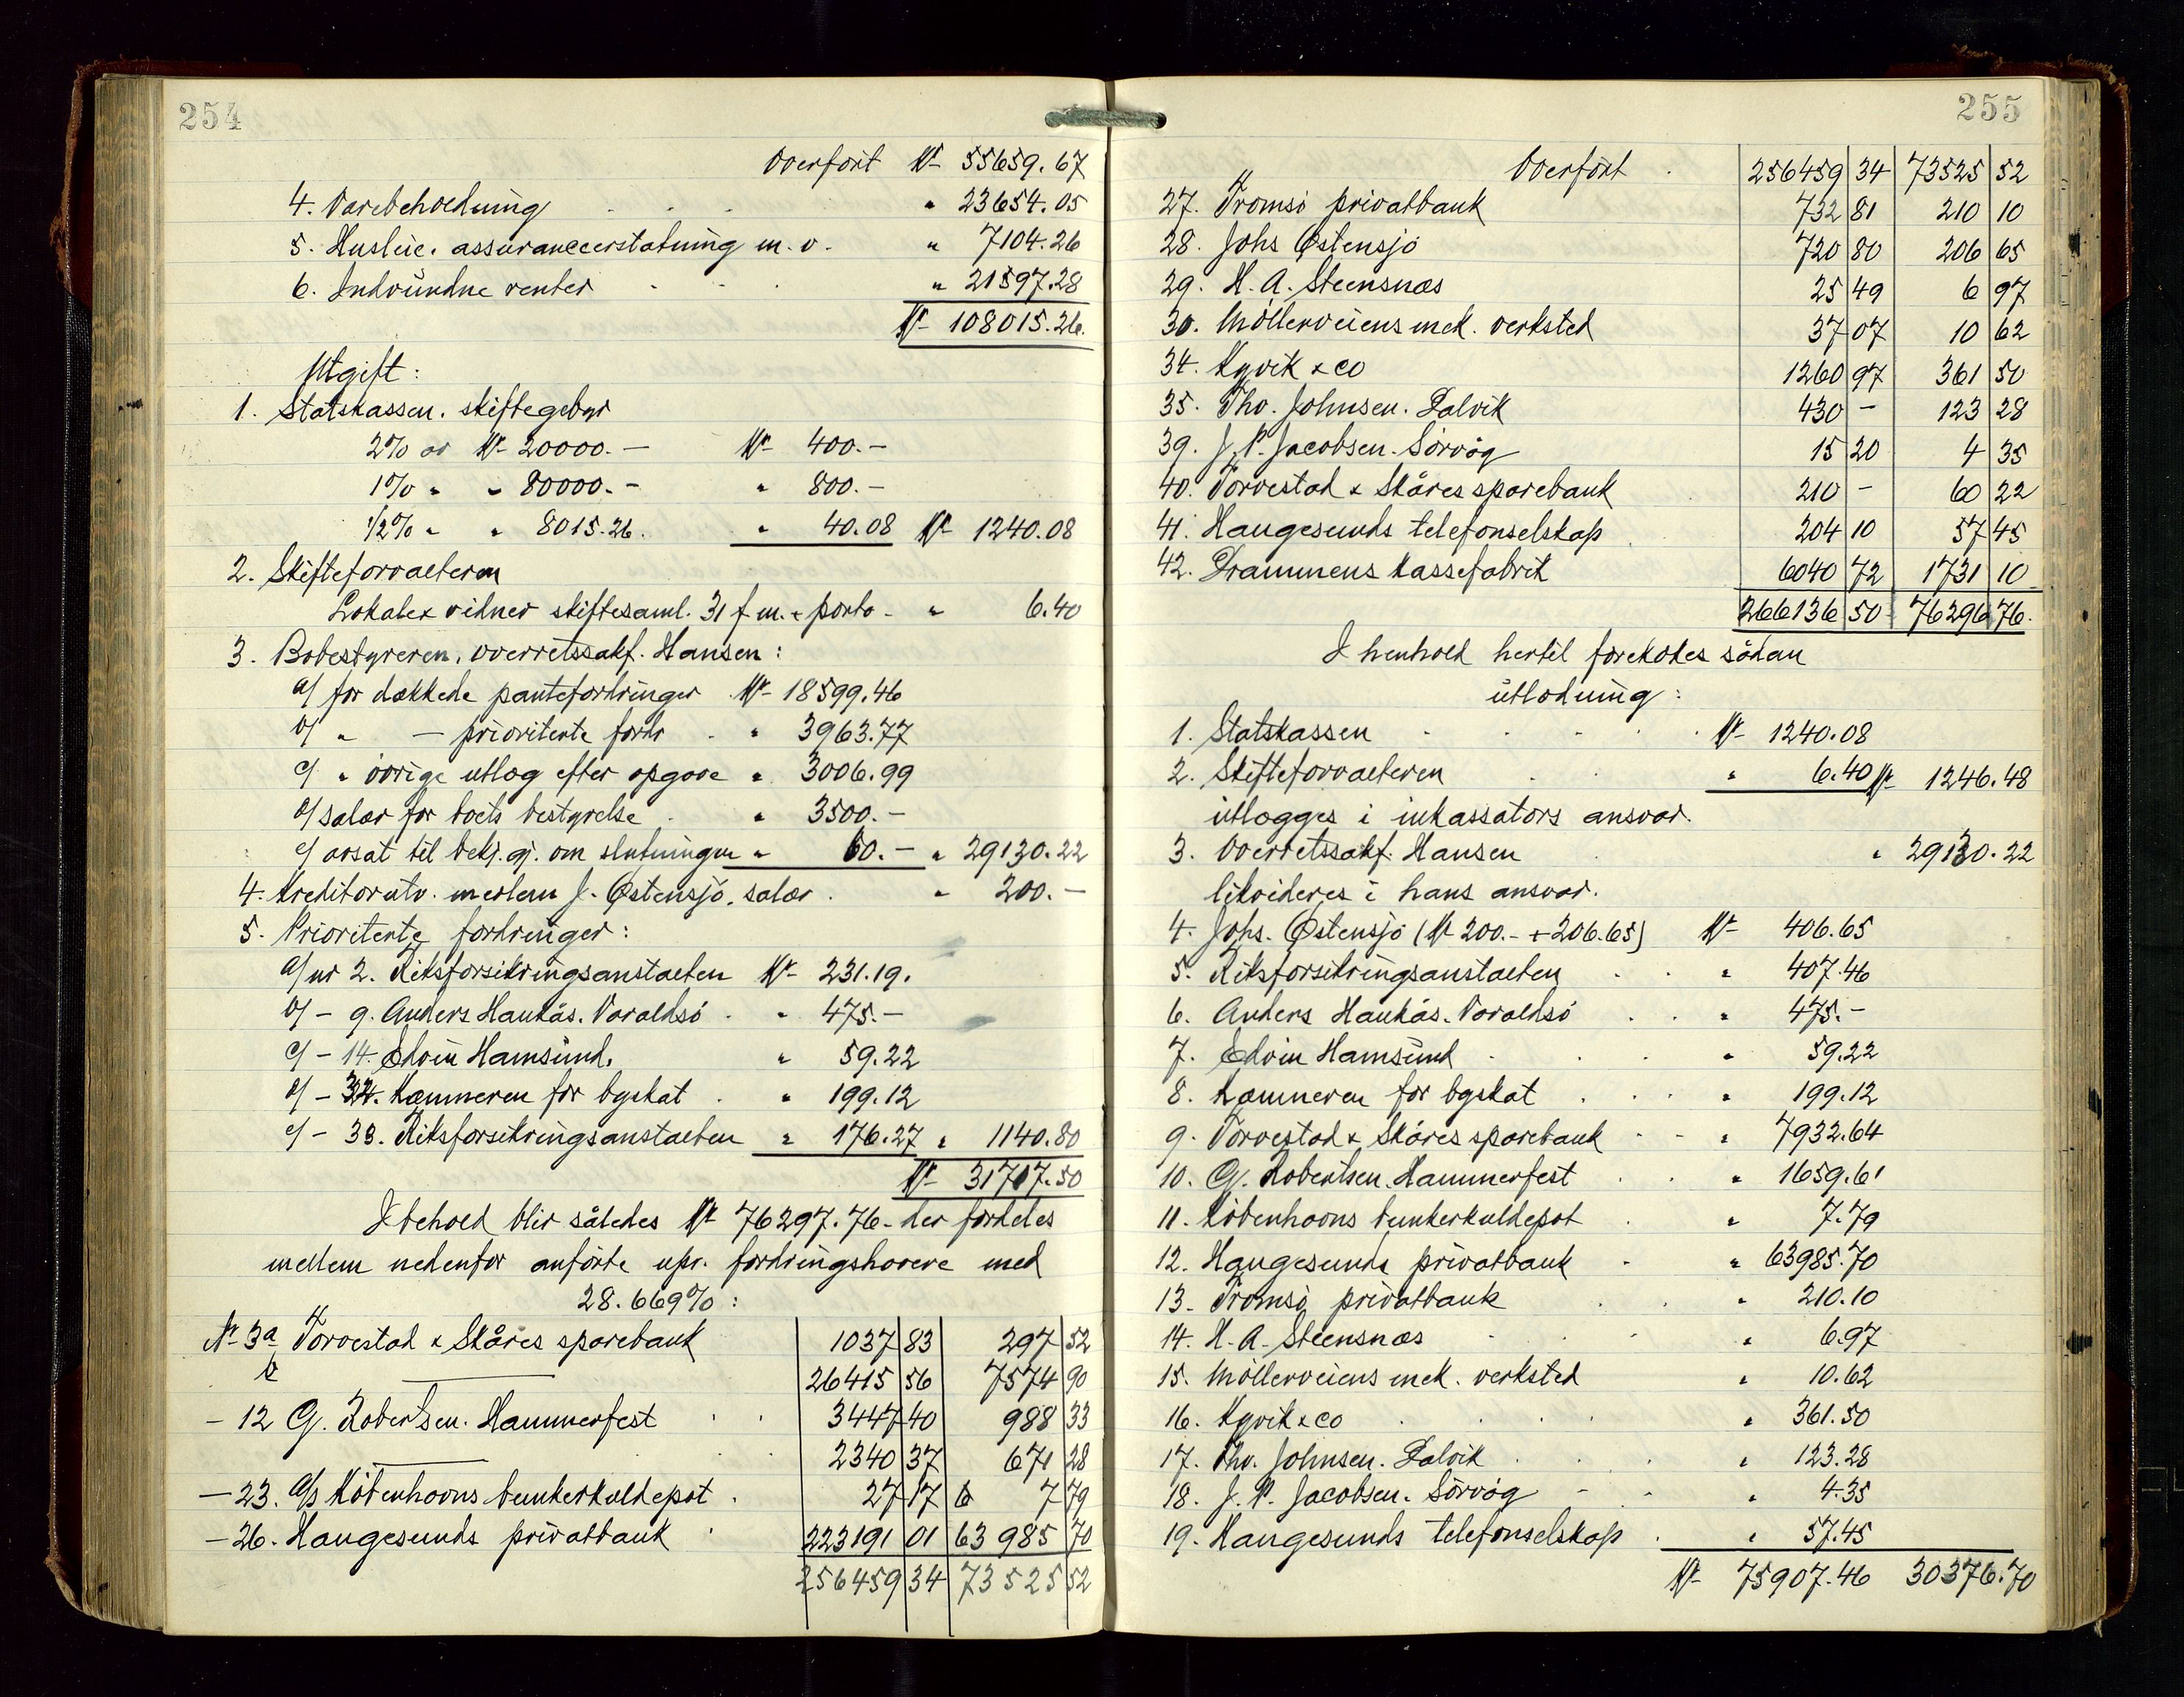 254
Overført Kr 55659.67
4. Varebeholdning . . . " 23654.05
5. Husleie, assuranceerstatning m.v. " 7104.26
6. Indvundne renter . . . " 21597.28
Kr 108015.26.
Utgift:
1. Statskassen, skiftegebyr
2% av Kr 20000.— Kr 400.—
1% " " 80000.— " 800.—
1/2% " " 8015.26. " 40.08 Kr 1240.08
2. Skifteforvalteren
Lokale & vidner skiftesaml. 31 f.m. + porto - " 6.40
3. Bobestyreren, overretssakf. Hansen:
a/ for dækkede pantefordringer Kr 18599.46
b/ " — prioriterte fordr . " 3963.77
c/ " övrige utlæg efter opgave " 3006.99
d/ salær for boets bestyrelse . " 3500.—
e/ avsat til bekj.gj. om slutningen " 60.— " 29130.22
4. Kreditorutv. medlem J. Østensjö, salær . " 200.—
5. Prioriterte fordringer:
a/ nr 2. Riksforsikringsanstalten Kr 231.19.
b/ - 9. Anders Haukås, Varaldsö . " 475.—
c/ - 14. Edvin Hamsund. " 59.22
d/ - 32. Kæmneren for byskat . " 199.12
e/ - 33. Riksforsikringsanstalten " 176.27 " 1140.80
Kr 31717.50
I behold blir således Kr 76297.76 - der fordeles
mellem nedenfor anförte upr. fordringshavere med
28.669%:
Nr 3a Torvestad & Skåres sparebank 1037 83 297 52
b ——— 26415 56 7574 90
- 12 G. Robertsen. Hammerfest . . 3447 40 988 33
——— . . 2340 37 671 28
- 23. A/s Köbenhavns bunkerkuldepot . 27 17 6 7 79
- 26. Haugesunds privatbank . 223191 01 63 985 70
256459 34 73525 52
255
Overført . 256459 34 73525 52
27. Tromsö privatbank 732 81 210 10
28. Johs Østensjö 720 80 206 65
29. H. A. Steensnæs 25 49 6 97
30. Möllerveiens mek. verksted 37 07 10 62
34. Kyvik & co 1260 97 361 50
35. Thv. Johnsen. Dalvik 430 — 123 28
39. J. P. Jacobsen. Sörvåg 15 20 4 35
40. Torvestad & Skåres sparebank 210 — 60 22
41. Haugesunds telefonselskap . 204 10 57 45
42. Drammens kassefabrik 6040 72 1731 10
266136 50 76296 76.
I henhold hertil foretokes sådan
utlodning:
1. Statskassen . . . . . Kr 1240.08
2. Skifteforvalteren . . " 6.40 Kr 1246.48
utlægges i inkassators ansvar.
3. Overretssakf. Hansen . " 29130.22
likvideres i hans ansvar.
4. Johs. Østensjö (Kr 200.- + 206.65) Kr 406.65
5. Riksforsikringsanstalten . . " 407.46
6. Anders Haukås. Varaldsö . . " 475.—
7. Edvin Hamsund . . . " 59.22
8. Kæmneren for byskat . . . " 199.12
9. Torvestad & Skåres sparebank - - " 7932.64
10. G. Robertsen. Hammerfest . . " 1659.61
11. Köbenhavns bunkerkuldepot . " 7.79
12. Haugesunds privatbank - " 63985.70
13. Tromsö privatbank . . " 210.10
14. H. A. Steensnæs . . " 6.97
15. Möllerveiens mek. verksted " 10.62
16. Kyvik & co . . . . " 361.50
17. Thv. Johnsen. Dalvik . . . " 123.28
18. J. P. Jacobsen. Sörvåg - - " 4.35
19. Haugesunds telefonselskap . " 57.45
Kr 75907.46 30376.70